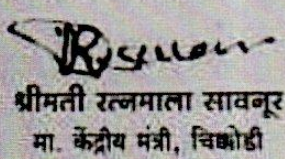 श्रीमती रत्नमाला सावनूर
मा. केंद्रीय मंत्री, चिक्कोडी